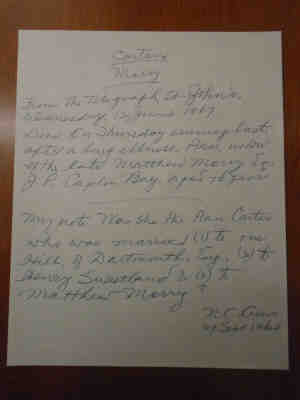 Carter
Morry
From the Telegraph, St. John's,
Wednesday, 12 June 1867
Died On Thursday evening last,
after a long illness Ann, widow
of the late Matthew Morry Esq.
J. P. Caplin Bay, aged 76 years
My note Was she the Ann Carter
who was married (1) to one
Hill of Dartmouth, Eng., (2) to
Henry Sweetland & (3) to
Matthew Morry?
Sept 1960